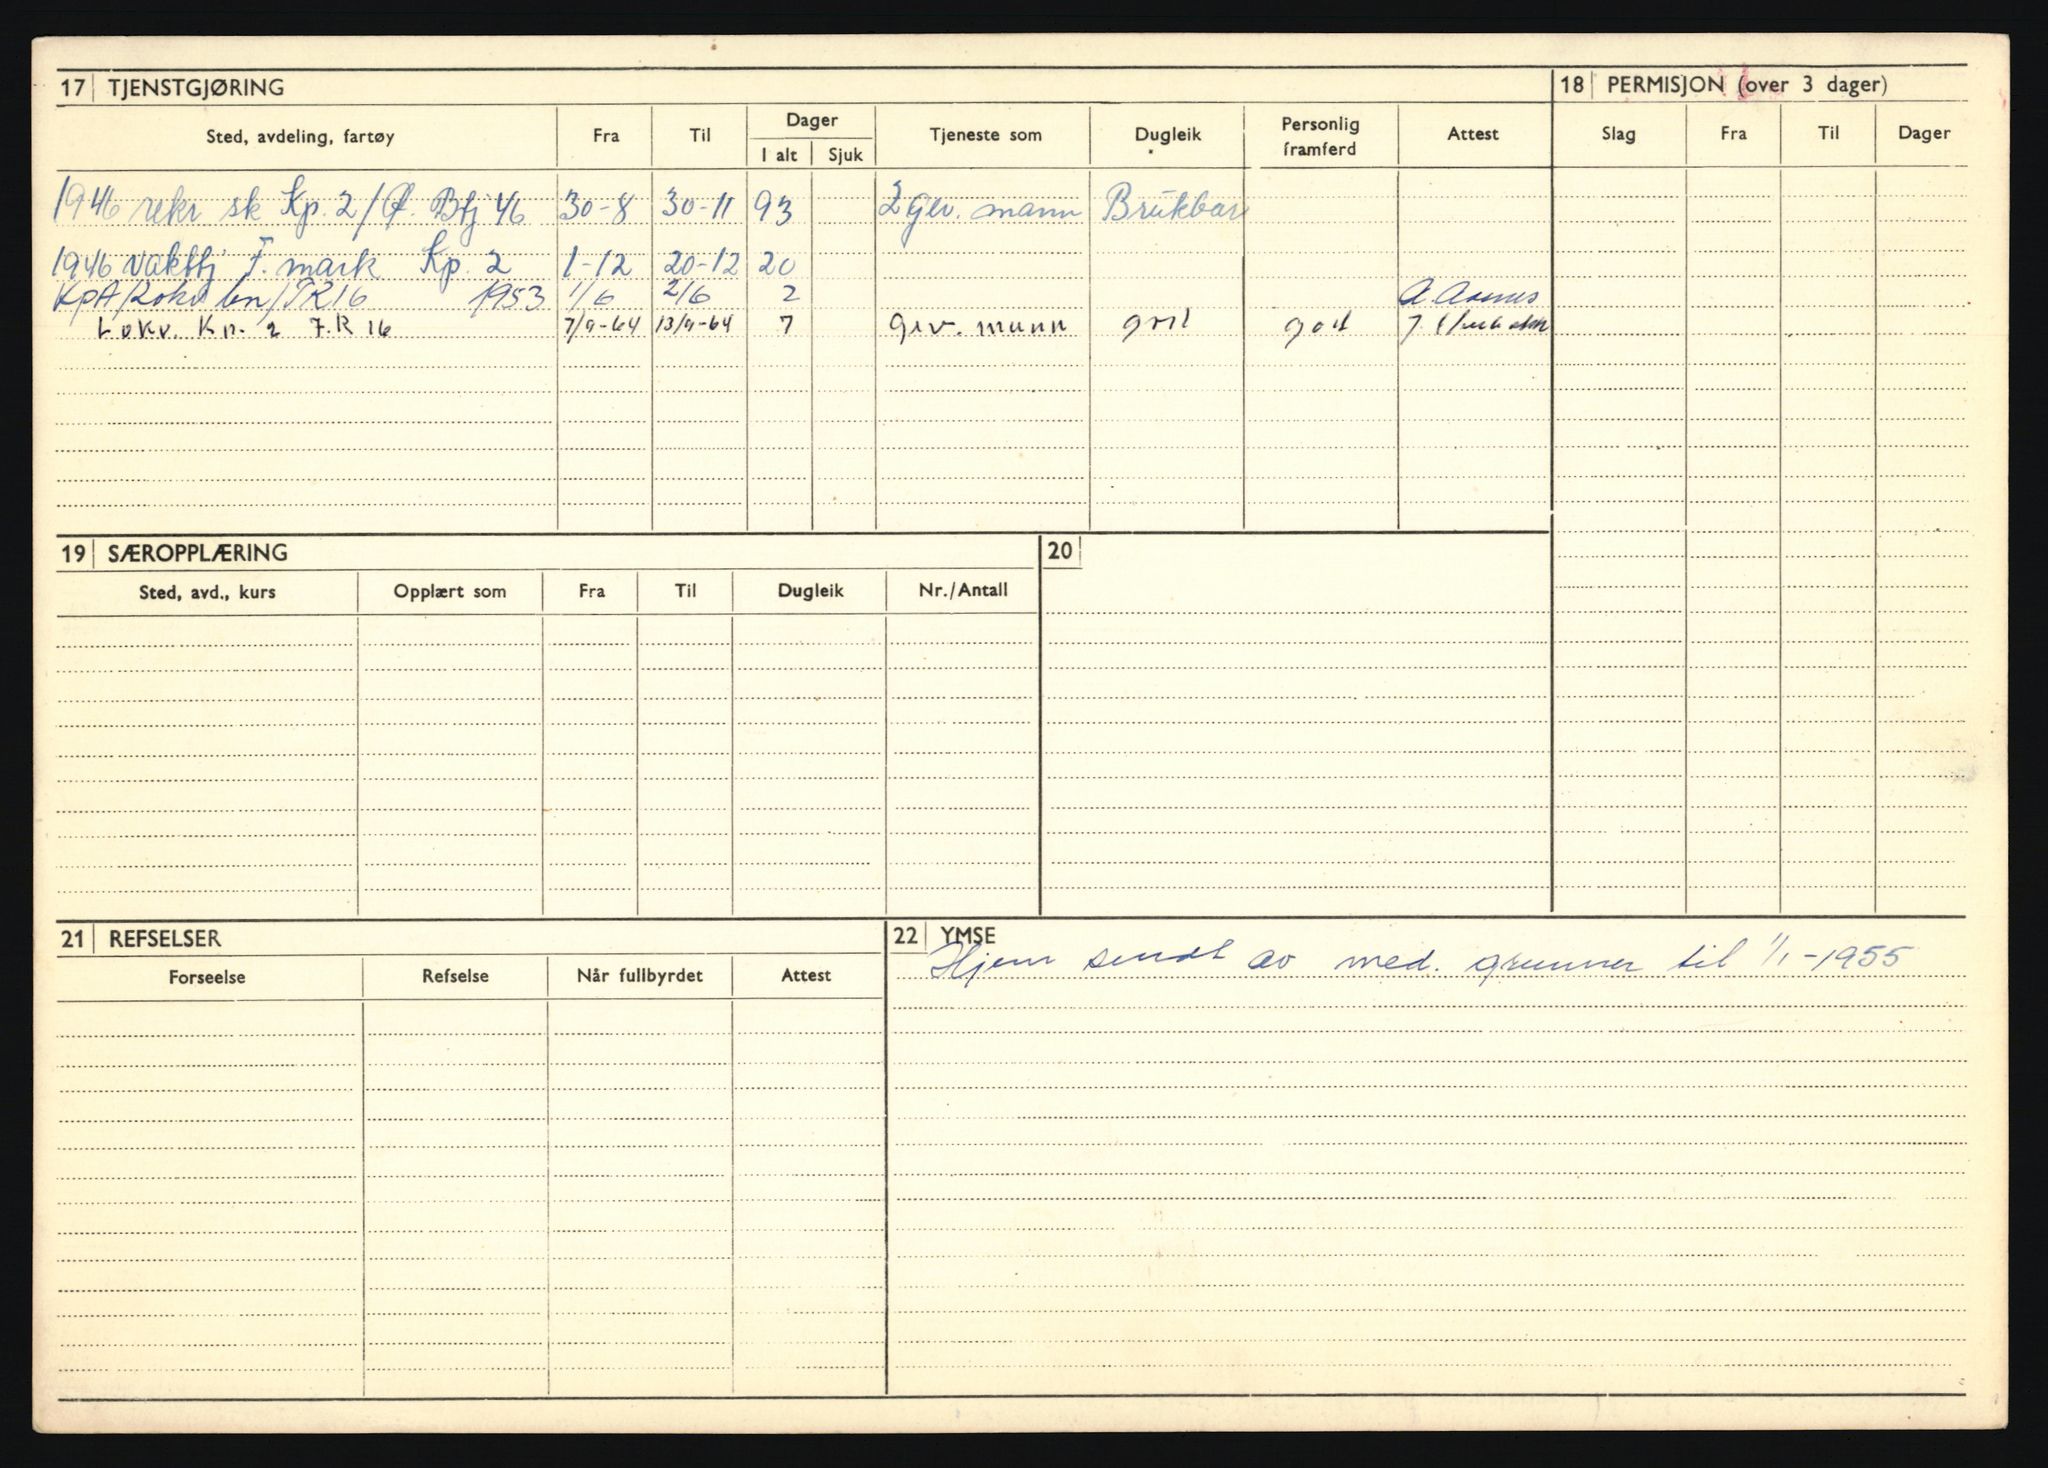 17 TJENSTGJØRING
18 PERMISJON (over 3 dager)
Sted, avdeling, fartøy Fra Til Dager I alt Sjuk Tjeneste som Dugleik Personlig framferd Attest Slag Fra Til Dager
1946 rekr sk Kp. 2/Ø. Bfj 46 30-8 30-11 93 2 gev. mann Brukbar
1946 vaktbj F. mark Kp. 2 1-12 20-12 20
KpA/Lokv bn/IR16 1953 1/6 2/6 2 A. Asmus
Lokv. Kp. 2 I.R 16 7/9-64 13/9-64 7 Gev. mann god god
19 SÆROPPLÆRING
20
Sted, avd., kurs Opplært som Fra Til Dugleik Nr./Antall
21 REFSELSER
22 YMSE
Forseelse Refselse Når fullbyrdet Attest
Hjem sendt av med. grunner til 1/1-1955